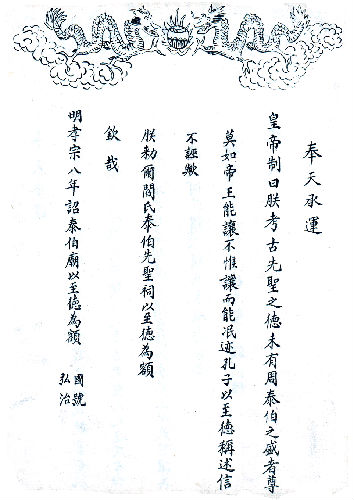 奉天承運
皇帝制曰朕考古先聖之德未有周泰伯之盛者尊
莫如帝王能讓不惟讓而能泯迹孔子以至德稱述信
不誣歟
朕勅爾閻氏泰伯先聖祠以至德為額
欽哉
明孝宗八年詔泰伯廟以至德為額
國號
弘治